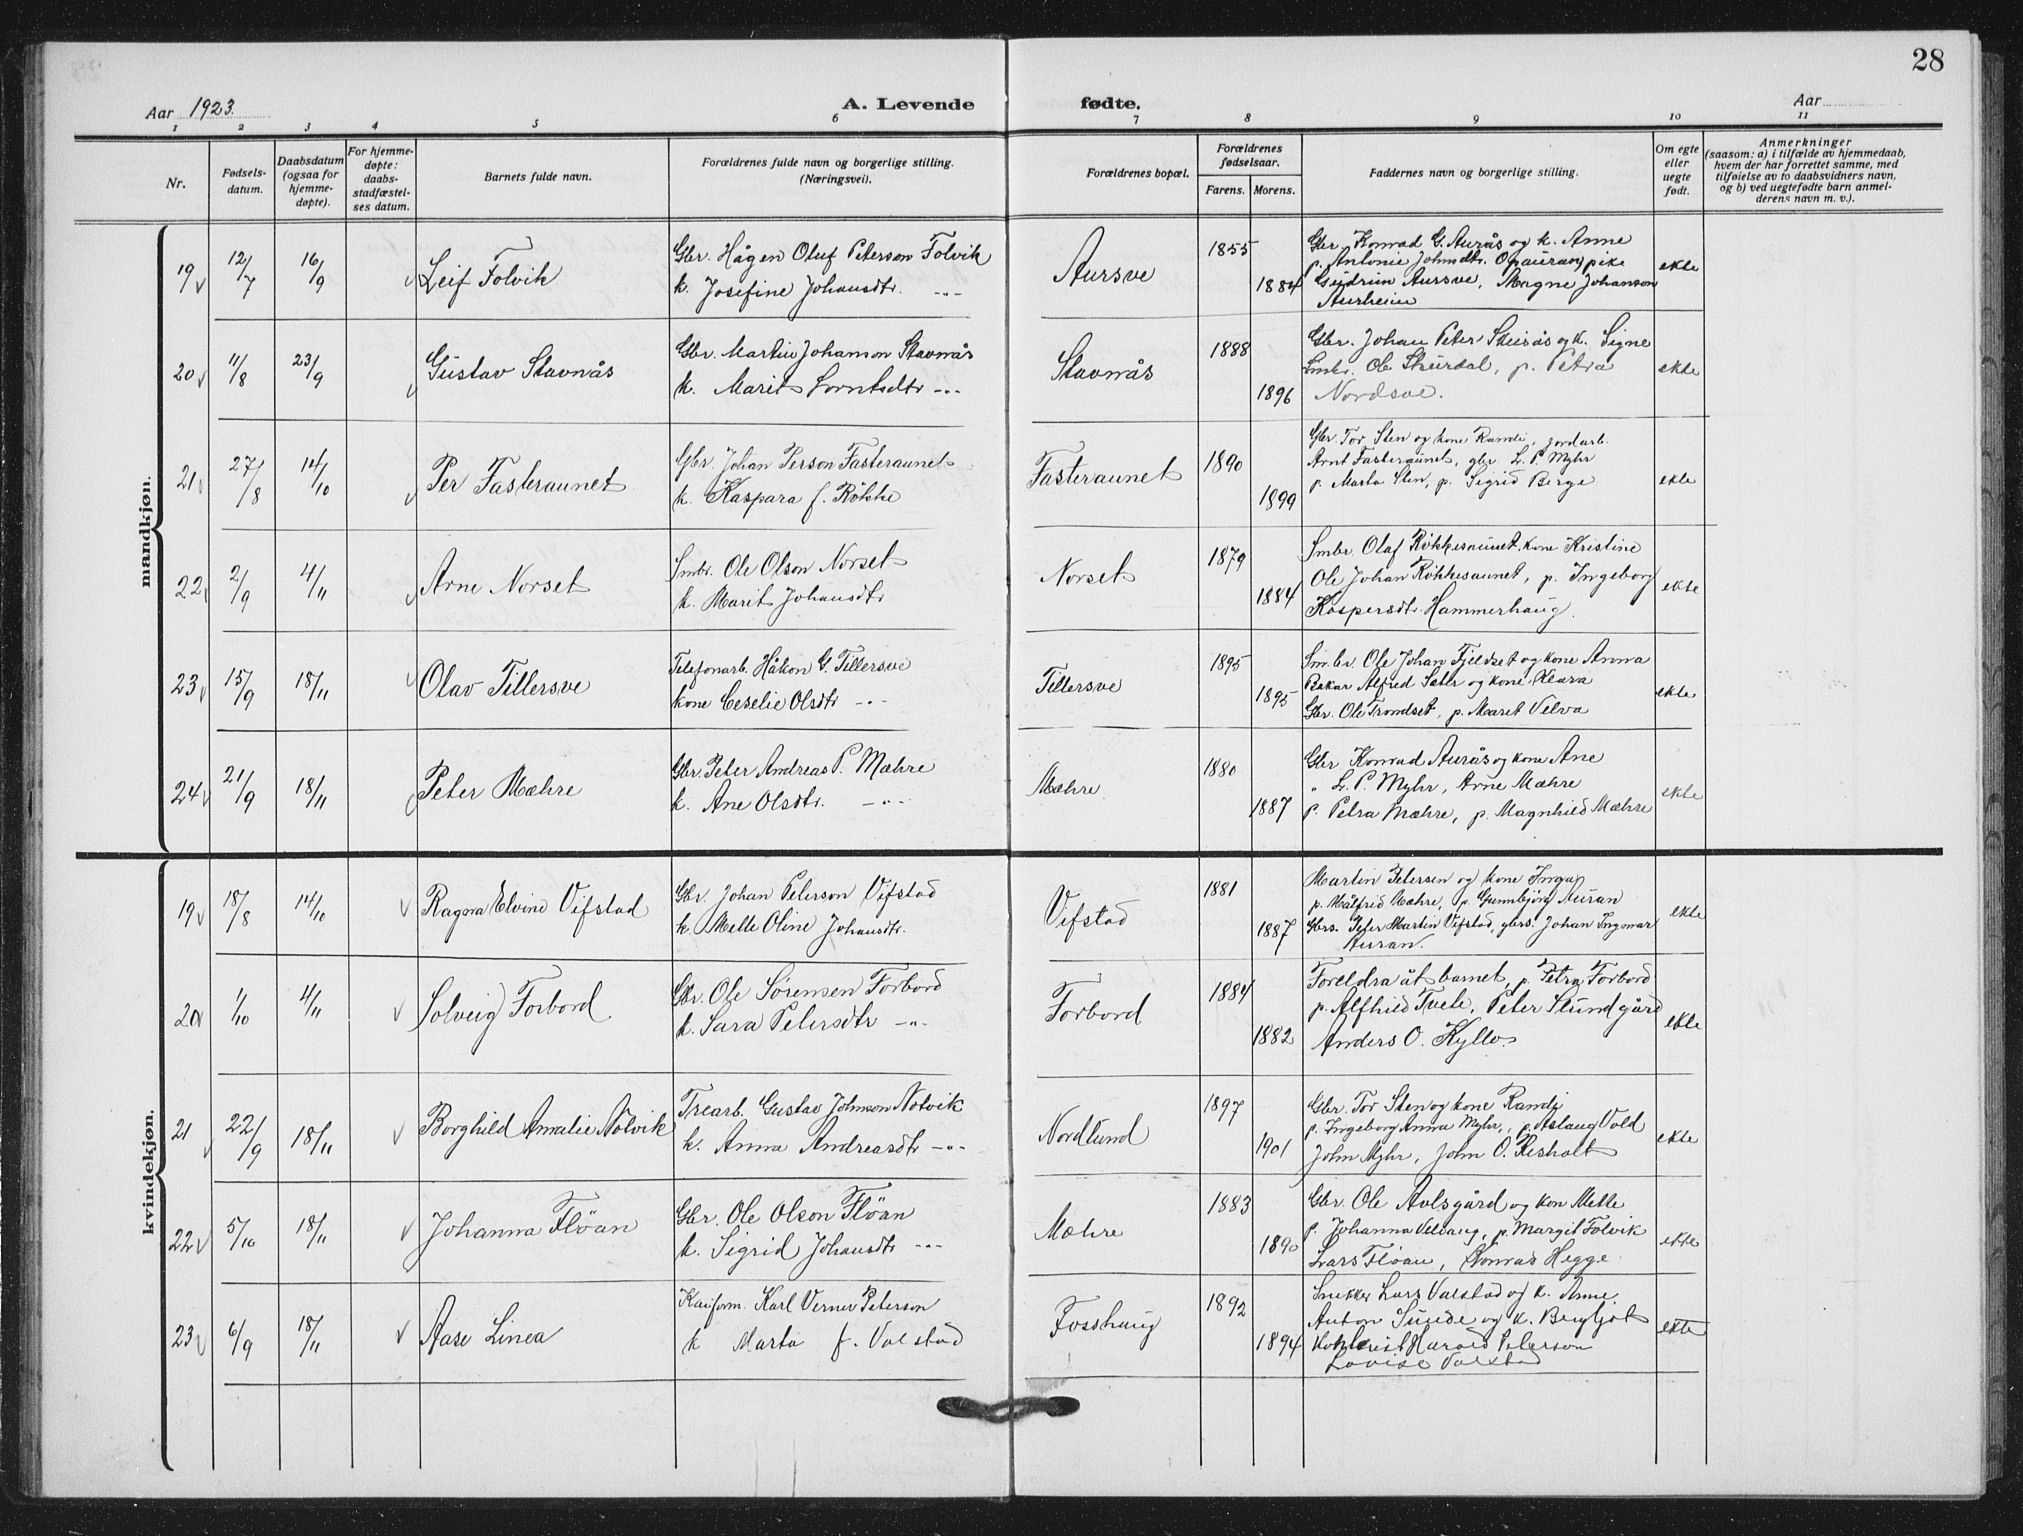 28
Aar 1923.
A. Levende fødte.
Aar
1 2 3 4 5 6 7 8 9 10 11
Nr.
Fødsels-
datum.
Daabsdatum
(ogsaa for
hjemme-
døpte).
For hjemme-
døpte:
daabs-
stadfæstel-
ses datum.
Barnets fulde navn.
Forældrenes fulde navn og borgerlige stilling.
(Næringsvei).
Forældrenes bopæl.
Forældrenes
fødselsaar.
Farens. Morens.
Faddernes navn og borgerlige stilling.
Om egte
eller
uegte
født.
Anmerkninger
(saasom: a) i tilfælde av hjemmedaab,
hvem der har forrettet samme, med
tilføielse av to daabsvidners navn,
og b) ved uegtefødte barn anmel-
derens navn m. v.).
mandkjøn.
19 12/7 16/9 Leif Folvik
Gbr. Hågen Oluf Peterson Folvik
k. Josefine Johansdtr. -"-
Aursve 1855 1884
Gbr. Konrad G. Aurås og k. Anne
p. Antonie Johnsdtr. pike
Gudrun Aursve, Magne Johanson
Aurheim
ekte
20 11/8 23/9 Gustav Stavnås
Gbr. Martin Johanson Stavnås
k. Marit Lorntsdtr -"-
Stavnås 1888 1896
Gbr. Johan Peter Steisås og k. Signe
Smbr. Ole Skurdal, p. Petra
Nordsve.
ekte
21 27/8 14/10 Per Fasteraunet
Gbr. Johan Person Fasteraunet
k. Kaspara f. Røkke
Fasteraunet 1890 1899
Gbr. Tor Sten og kone Randi, jordarb.
Arnt Fasteraunet, gbr. L. P. Myhr
p. Marta Sten, p. Sigrid Berge
ekte
22 2/9 4/11 Arne Norset
Smbr. Ole Olson Norset
k. Marit Johansdtr
Norset 1879 1884
Smbr. Olaf Røkkesaunet, kone Kristine
Ole Johan Røkkesaunet, p. Ingeborg
Kaspersdtr. Hammerhaug.
ekte
23 15/9 18/11 Olav Tillersve
Telefonarb. Håkon G. Tillersve
kone Ceselie Olsdtr -"-
Tillersve 1895 1895
Sm.br. Ole Johan Fjeldset og kone Anna
Bakar Alfred Sæter og kone Klara
Gbr. Ole Trondset, p. Maret Velva
ekte
24 21/9 18/11 Peter Mæhre
Gbr. Peter Andreas P. Mæhre
k. Ane Olsdtr. -"-
Mæhre 1880 1887
Gbr. Konrad Aurås og kone Ane
" L. P. Myhr, Arne Mæhre
p. Petra Mæhre, p. Magnhild Mæhre
ekte
kvindekjøn.
19 18/8 14/10 Ragna Elvine Vifstad
Gbr. Johan Peterson Vifstad
k. Mette Oline Johansdtr.
Vifstad 1881 1887
Martin Petersen og kone Inga
p. Målfrid Mæhre, p. Gunnbjørg Auran
Gbrs. Peter Martin Vifstad, gbrs. Johan Ingmar
Auran.
ekte
20 1/10 4/11 Solveig Forbord
Gbr. Ole Sørensen Forbord
k. Sara Petersdtr -"-
Forbord 1884 1882
Foreldra åt barnet, p. Petra Forbord
p. Alfhild Tvete, Peter Slundgård
Anders O. Kyllo.
ekte
21 22/9 18/11 Borghild Amalie Nolvik
Trearb. Gustav Johnson Nolvik
k. Anna Andreasdtr -"-
Nordlund 1897 1901
Gbr. Tor Sten og kone Randi
p. Ingeborg Anna Myhr, p. Aslaug Vold
John Myhr, John O. Resholt
ekte
22 5/10 18/11 Johanna Fløan
Gbr. Ole Olson Fløan
k. Sigrid Johansdtr -"-
Mæhre 1883 1890
Gbr. Ole Avlsgård og kon Mette
p. Johanna Velvang, p. Margit Folvik
Lars Fløan, Konrad Hegge.
ekte
23 6/9 18/11 Aase Linea
Kaiform. Karl Verner Peterson
k Marta f. Valstad
Fosshaug 1892 1894
Snekker Lars Valstad og k. Anne
Anton Sunde og k. Bergljot
Harald Peterson
Lovise Valstad
ekte